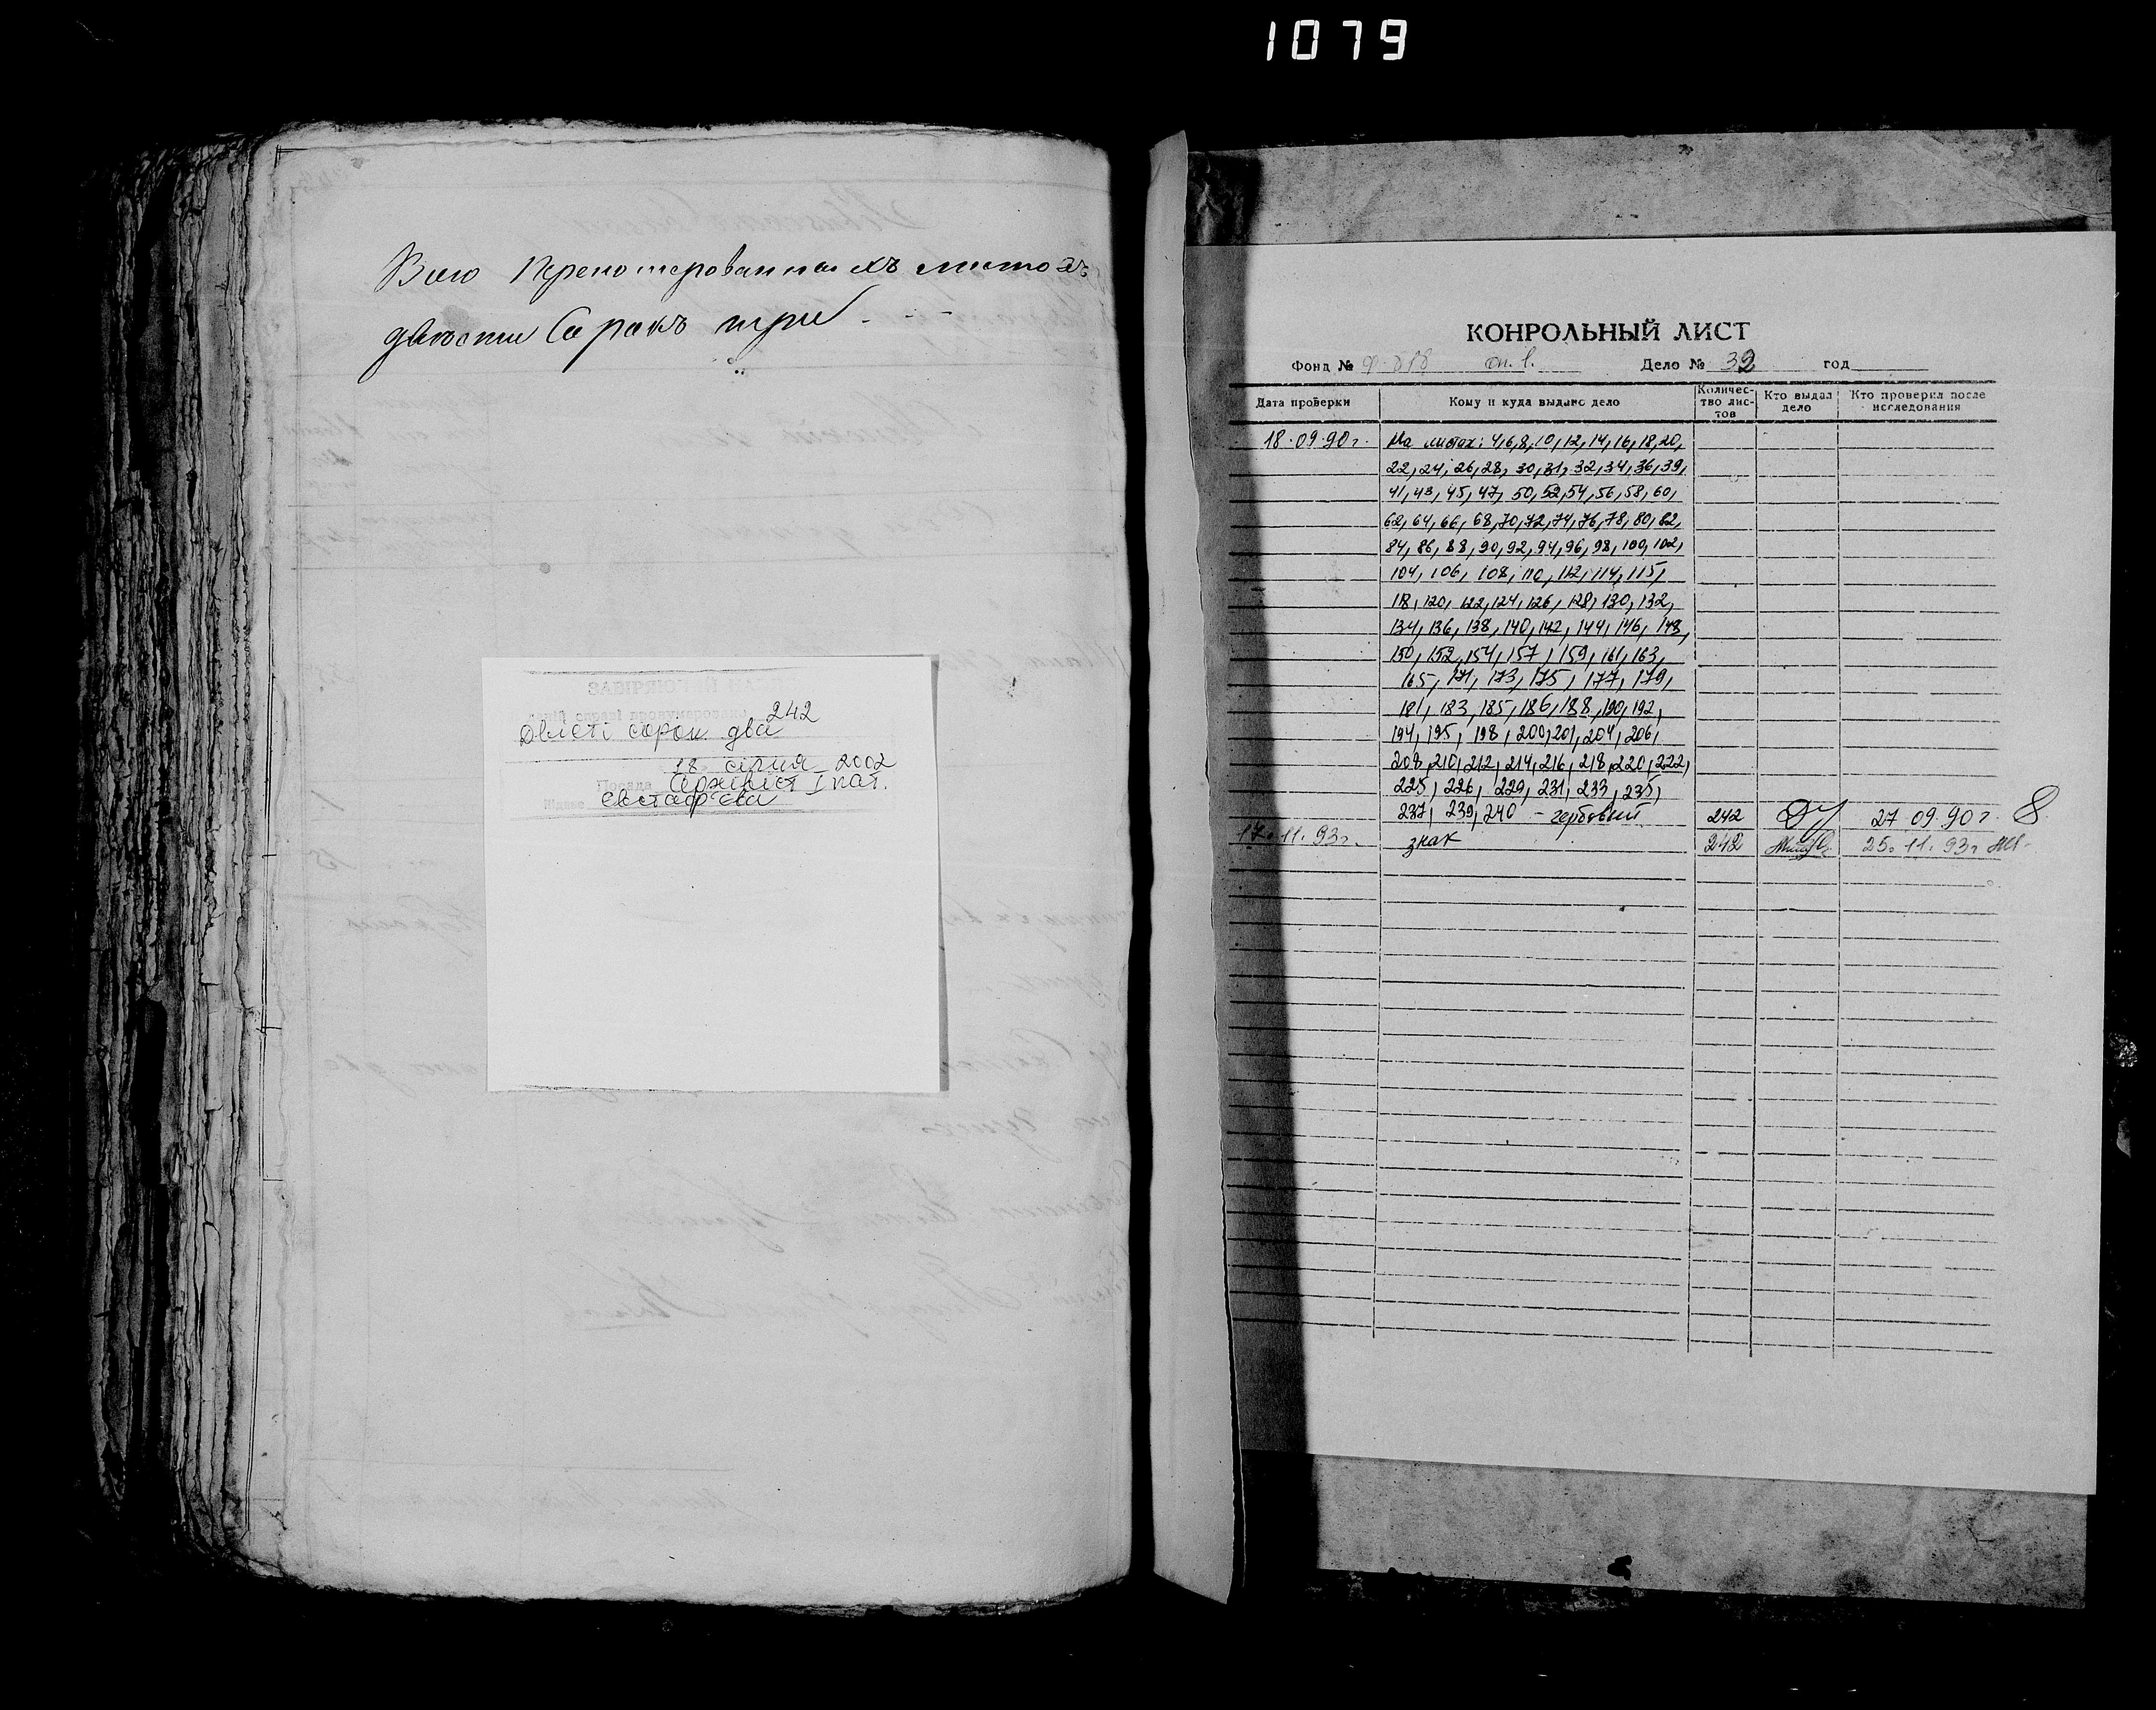 1079
Всего Перенумерованныхъ листовъ
двѣсти Сорокъ три
ЗАВІРЯЮЧИЙ
242
Двісті сорок два
18 серпня 2002
Посада Архівіст I кат.
Підпис Євстаф'єва
КОНРОЛЬНЫЙ ЛИСТ
Фонд № оп. 1. Дело № 32 год
Дата проверки
Кому и куда выдано дело
Количес-
тво лис-
тов
Кто выдал
дело
Кто проверил после
исследования
18.09.90г. На листах: 4,6,8,10,12,14,16,18,20,
22,24,26,28,30,31,32,34,36,39,
41,43,45,47,50,52,54,56,58,60,
62,64,66,68,70,72,74,76,78,80,82,
84,86,88,90,92,94,96,98,100,102,
104,106,108,110,112,114,115,
118,120,122,124,126,128,130,132,
134,136,138,140,142,144,146,148,
150,152,154,157,159,161,163,
165,171,173,175,177,179,
181,183,185,186,188,190,192,
194,195,198,200,201,204,206,
208,210,212,214,216,218,220,222,
225,226,229,231,233,235,
237,239,240 – гербовый 242 27 09.90г. 8
17.11.93г. знак 242 25.11.93г